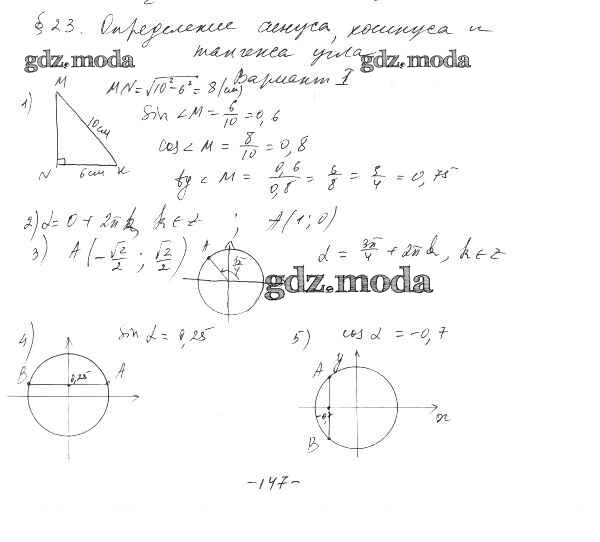 § 23. Определение синуса, косинуса и
тангенса угла
gdz.moda gdz.moda
Вариант I
1) M
MN = √10² - 6² = 8 (см)
10 см
N 6 см K
sin ∠ M = 6/10 = 0,6
cos ∠ M = 8/10 = 0,8
tg ∠ M = 0,6/0,8 = 6/8 = 3/4 = 0,75
2) α = 0 + 2πk, k ∈ Z ; A (1; 0)
3) A (-√2/2 ; √2/2) A 3π/4 α = 3π/4 + 2πk, k ∈ Z
gdz.moda
4) sin α = 0,25
B 0,25 A
5) cos α = -0,7
A y
-0,7 x
B
-147-